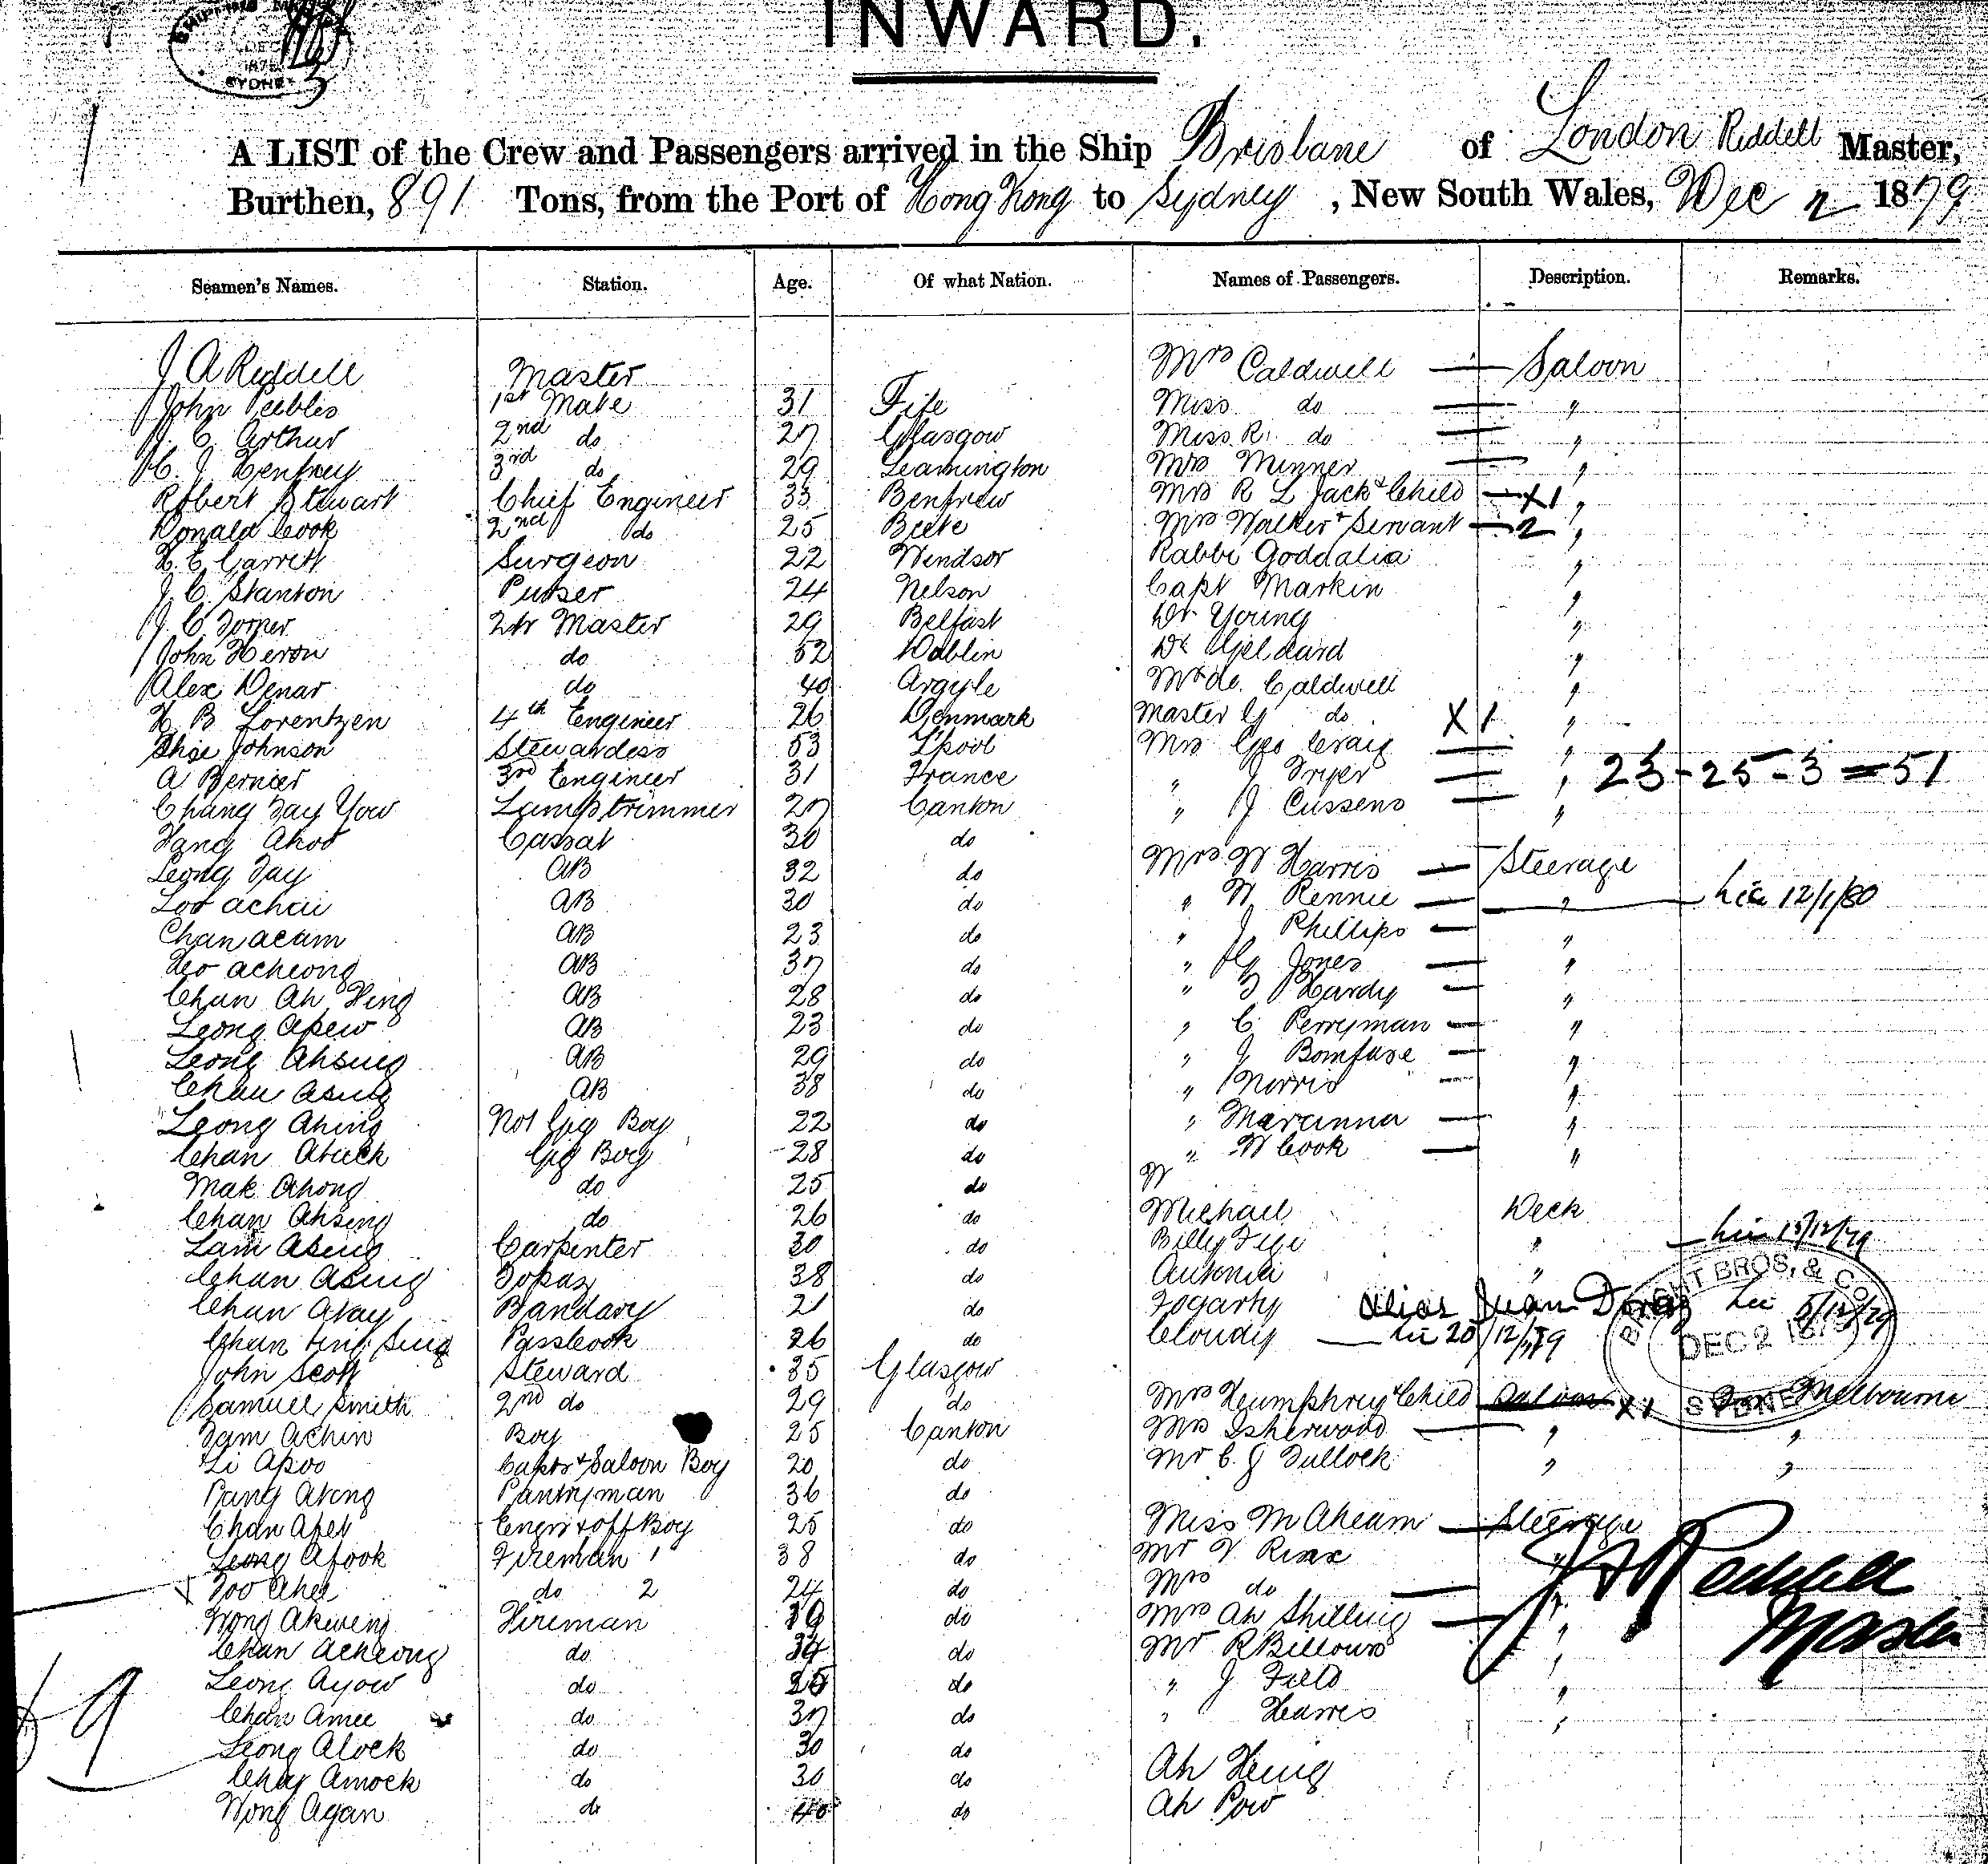 INWARD.
SYDNEY
A LIST of the Crew and Passengers arrived in the Ship Brisbane of London Riddell Master,
Burthen, 891 Tons, from the Port of Hong Kong to Sydney, New South Wales, Dec 2 1879
Seamen's Names. Station. Age. Of what Nation. Names of Passengers. Description. Remarks.
J A Riddell Master Mrs Caldwell — Saloon
John Peebles 1st Mate 31 Fife Miss do — "
J. C. Arthur 2nd do 27 Glasgow Miss R. do — "
3rd do 29 Leamington Mrs Minner — "
Robert Stewart Chief Engineer 33 Renfrew Mrs R L Jack & Child — X1 "
Donald Cook 2nd do 25 Bute Mrs Walker & Servant — 2 "
Garrett Surgeon 22 Windsor Rabbi Goddalia "
J. C. Stanton Purser 24 Nelson Capt Markin "
J. C. Torner 2tr Master 29 Belfast Dr Young "
John Heron do 52 Dublin Dr "
Alex Denar do 40 Argyle Caldwell "
H B Lorentzen 4th Engineer 26 Denmark Master G do X1 "
Johnson Stewardess 53 L'pool Mrs Geo Craig — "
A Bernier 3rd Engineer 31 France " J Fryer — " 23-25-3=51
Chang Tay Yow Lamptrimmer 27 Canton " J Cussens — "
Fang Ahoo Cassab 30 do
Leong Tay AB 32 do Mrs W Harris — Steerage
Loo achui AB 30 do " W Rennie — " 12/1/80
Chan acam AB 23 do " J Phillips — "
acheong AB 37 do " G Jones — "
Chan Ah Hing AB 28 do " T Hardy — "
Leong Apew AB 23 do " C Perryman — "
Leong Ahsing AB 29 do " J Bomfase — "
Chan Asing AB 38 do " Morris — "
Leong Ahing No1 Gig Boy 22 do " Maranna — "
Chan Atuck Gig Boy 28 do " W Cook — "
Mak Ahong do 25 do W
Chan Ahsing do 26 do Michael Deck
Lam Asing Carpenter 30 do Billy Fiji " 15/12/79
Chan Asing Topaz 38 do Antonia "
Chan Atay Bandary 21 do Fogarty alias Juan 5/12/79
Chan Sing Passcook 26 do Cloudy — 20/12/79
BRIGHT BROS, & CO
DEC 2 1879
SYDNEY
John Scott Steward 35 Glasgow
Samuel Smith 2nd do 29 do Mrs Humphrey & Child Saloon X1 For Melbourne
Tam Achin Boy 25 Canton Mrs Isherwood — " "
Li Apoo Capts & Saloon Boy 20 do Mr C. J Tullock " "
Pang Atong Pantryman 36 do
Chan Apet Engrs & off Boy 25 do Miss M Aheam — Steerage
Leong Afook Fireman 1 38 do Mr Rixx "
Too Ahee do 2 24 do Mrs do — "
Wong Akweng Fireman 39 do Mrs Ah Shilling — "
Chan Acheong do 34 do Mr R Billows "
Leong Ayow do 25 do " J Field "
Chan Amee do 37 do " Hawes "
Leong Alock do 30 do
Chay Amock do 30 do Ah Hing
Wong Agan do 40 do Ah Pow
J A Riddell
Master